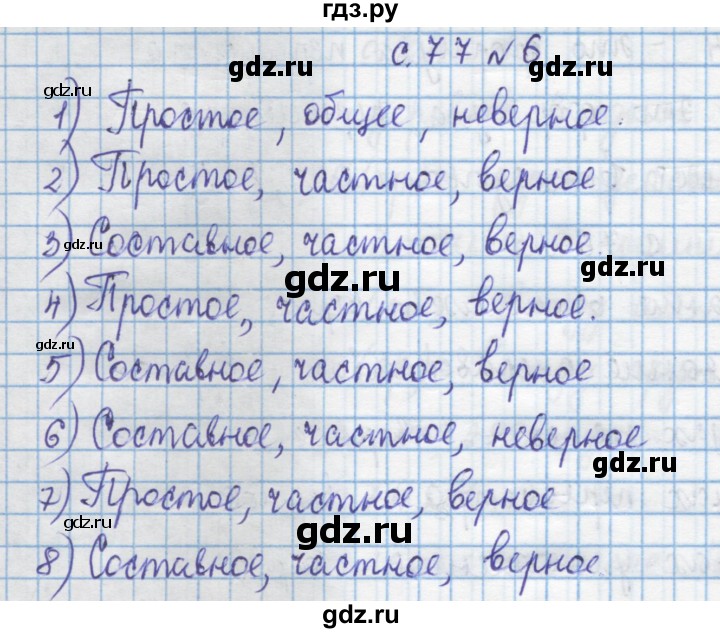 гдз.ру
с. 77 № 6
gdz.ru
gdz.ru
gdz.ru
1) Простое, общее, неверное.
2) Простое, частное, верное.
gdz.ru
3) Составное, частное, верное.
gdz.ru
gdz.ru
4) Простое, частное, верное.
gdz.ru
5) Составное, частное, верное
6) Составное, частное, неверное
gdz.ru
7) Простое, частное, верное
gdz.ru
gdz.ru
8) Составное, частное, верное
gdz.ru